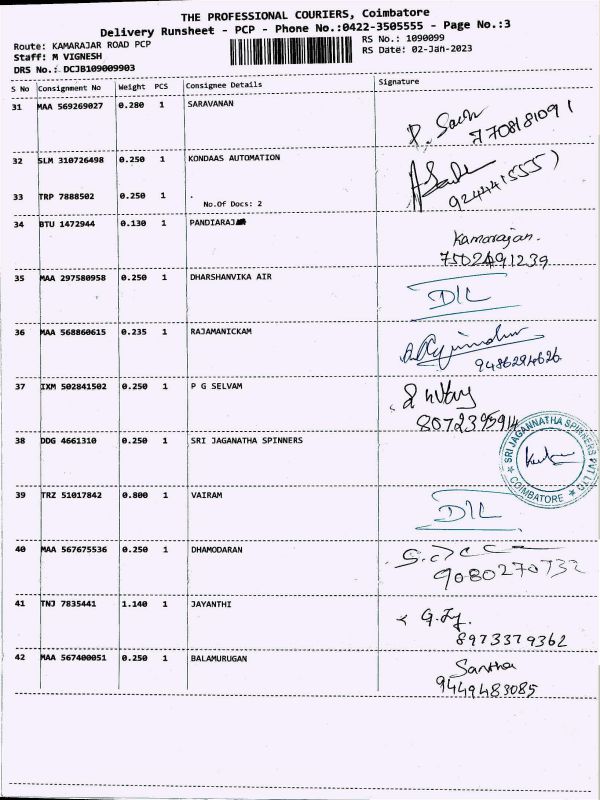 THE PROFESSIONAL COURIERS, Coimbatore
Delivery Runsheet - PCP - Phone No.:0422-3505555 - Page No.:3
Route: KAMARAJAR ROAD PCP RS No.: 1090099
Staff: M VIGNESH RS Date: 02-Jan-2023
DRS No.: DCJB109009903
S No Consignment No Weight PCS Consignee Details Signature
31 MAA 569269027 0.280 1 SARAVANAN
7708181091
32 SLM 310726498 0.250 1 KONDAAS AUTOMATION
33 TRP 7888502 0.250 1 .
No.Of Docs: 2
34 BTU 1472944 0.130 1 PANDIARAJ
Kamarajan.
7502491239
35 MAA 297580958 0.250 1 DHARSHANVIKA AIR
D/L
36 MAA 568860615 0.235 1 RAJAMANICKAM
9486294626
37 IXM 502841502 0.250 1 P G SELVAM
8072395914
38 DDG 4661310 0.250 1 SRI JAGANATHA SPINNERS
SRI JAGANNATHA SPINNERS PVT LTD
COIMBATORE
39 TRZ 51017842 0.800 1 VAIRAM
D/L
40 MAA 567675536 0.250 1 DHAMODARAN
9080270732
41 TNJ 7835441 1.140 1 JAYANTHI
8973379362
42 MAA 567400051 0.250 1 BALAMURUGAN
Santha
9449483085